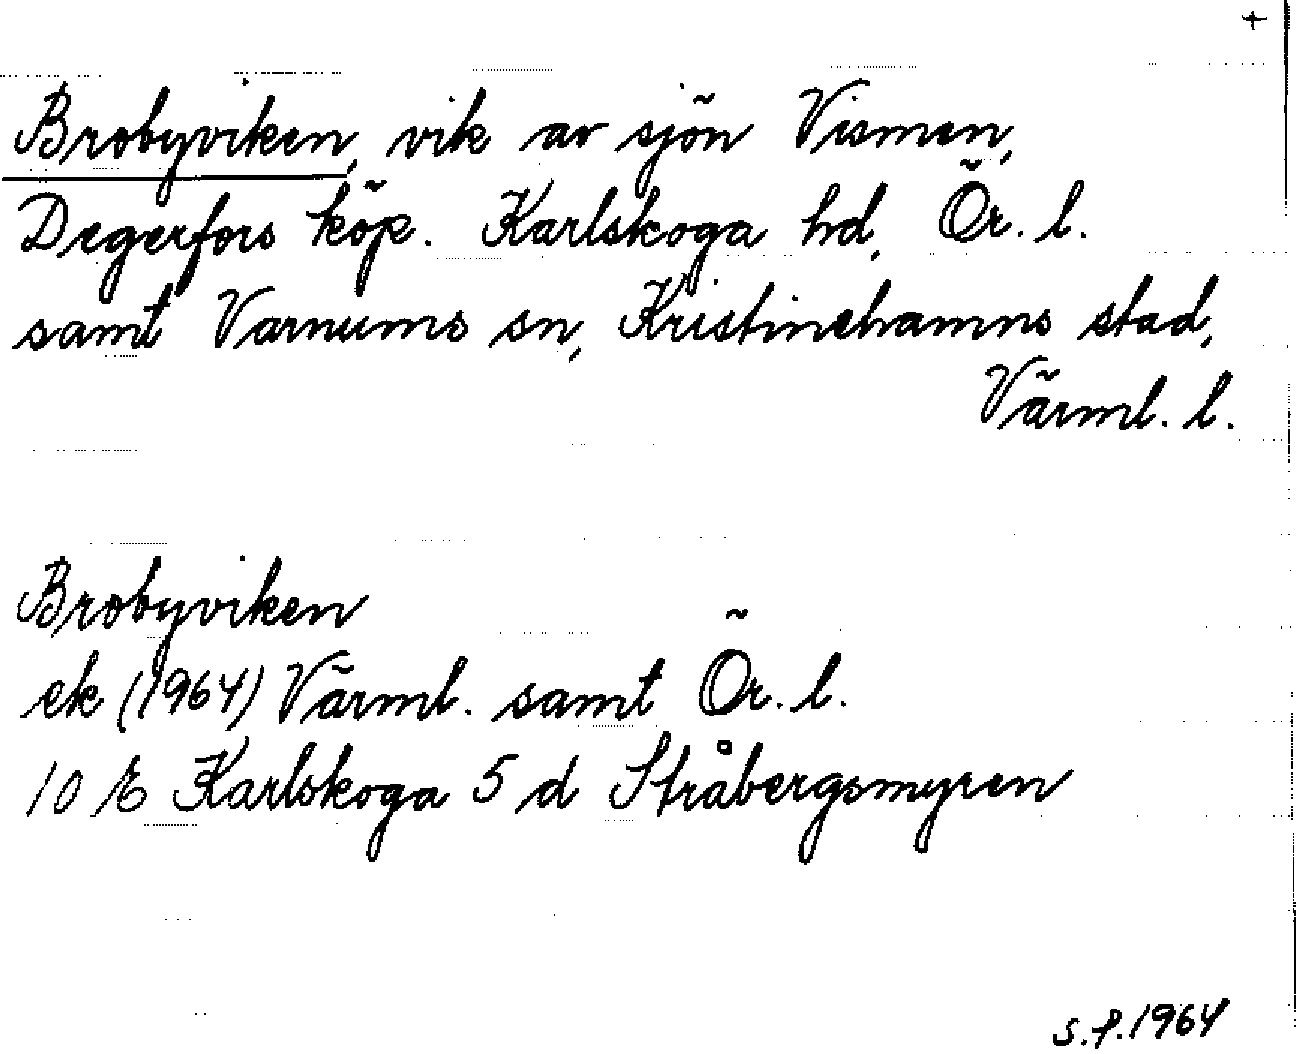 +
Brobyviken, vik av sjön Vismen,
Degerfors köp. Karlskoga hd, Ör. l.
samt Varnums sn, Kristinehamns stad,
Värml. l.
Brobyviken
ek (1964) Värml. samt Ör. l.
10 E Karlskoga 5 d Stråbergsmyren
S.f. 1964